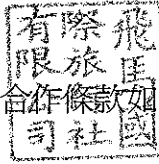 飛馬國
際旅社
有限司
合作條款如